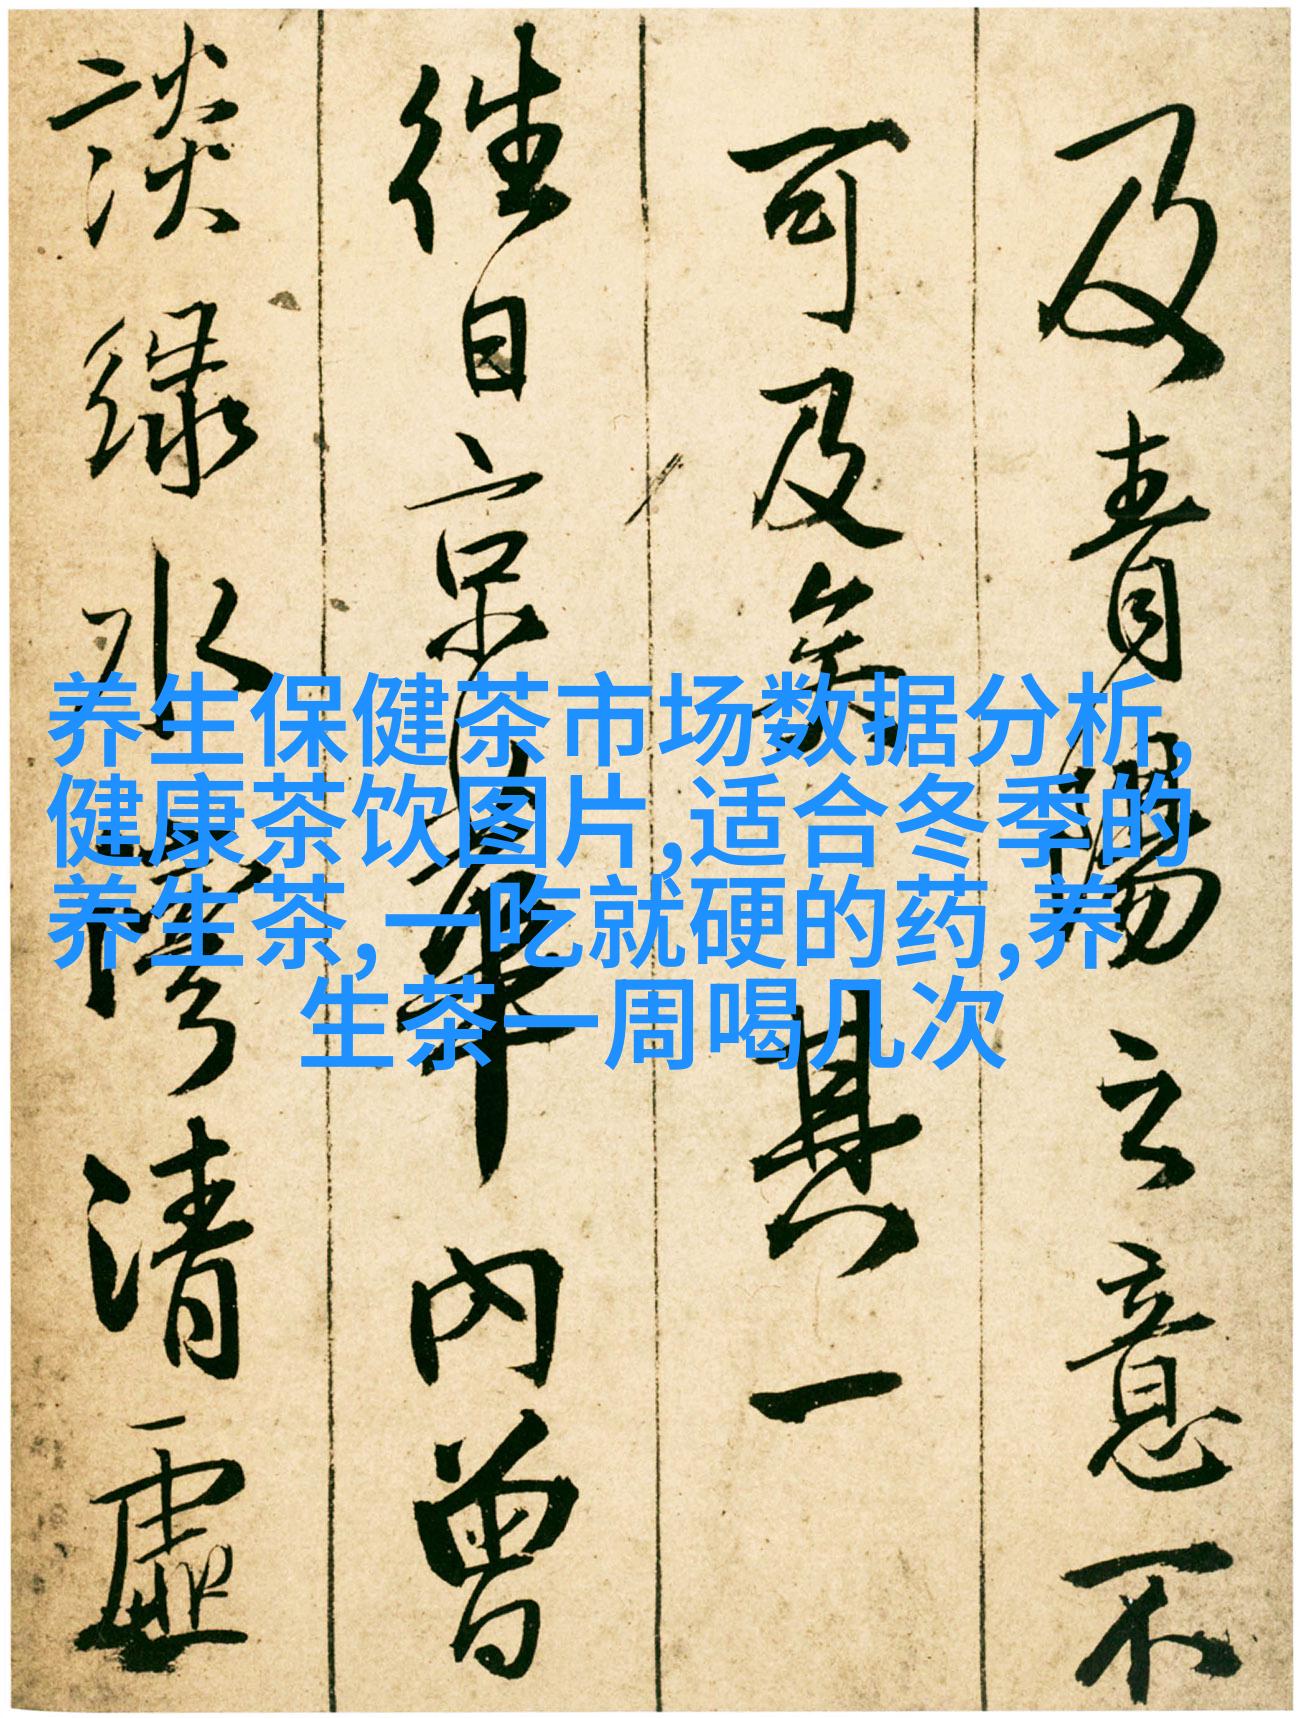 及青陽立意不
可及矣其一
往日京華內曾
談緑水灣清虛
养生保健茶市场数据分析,
健康茶饮图片,适合冬季的
养生茶,一吃就硬的药,养
生茶一周喝几次